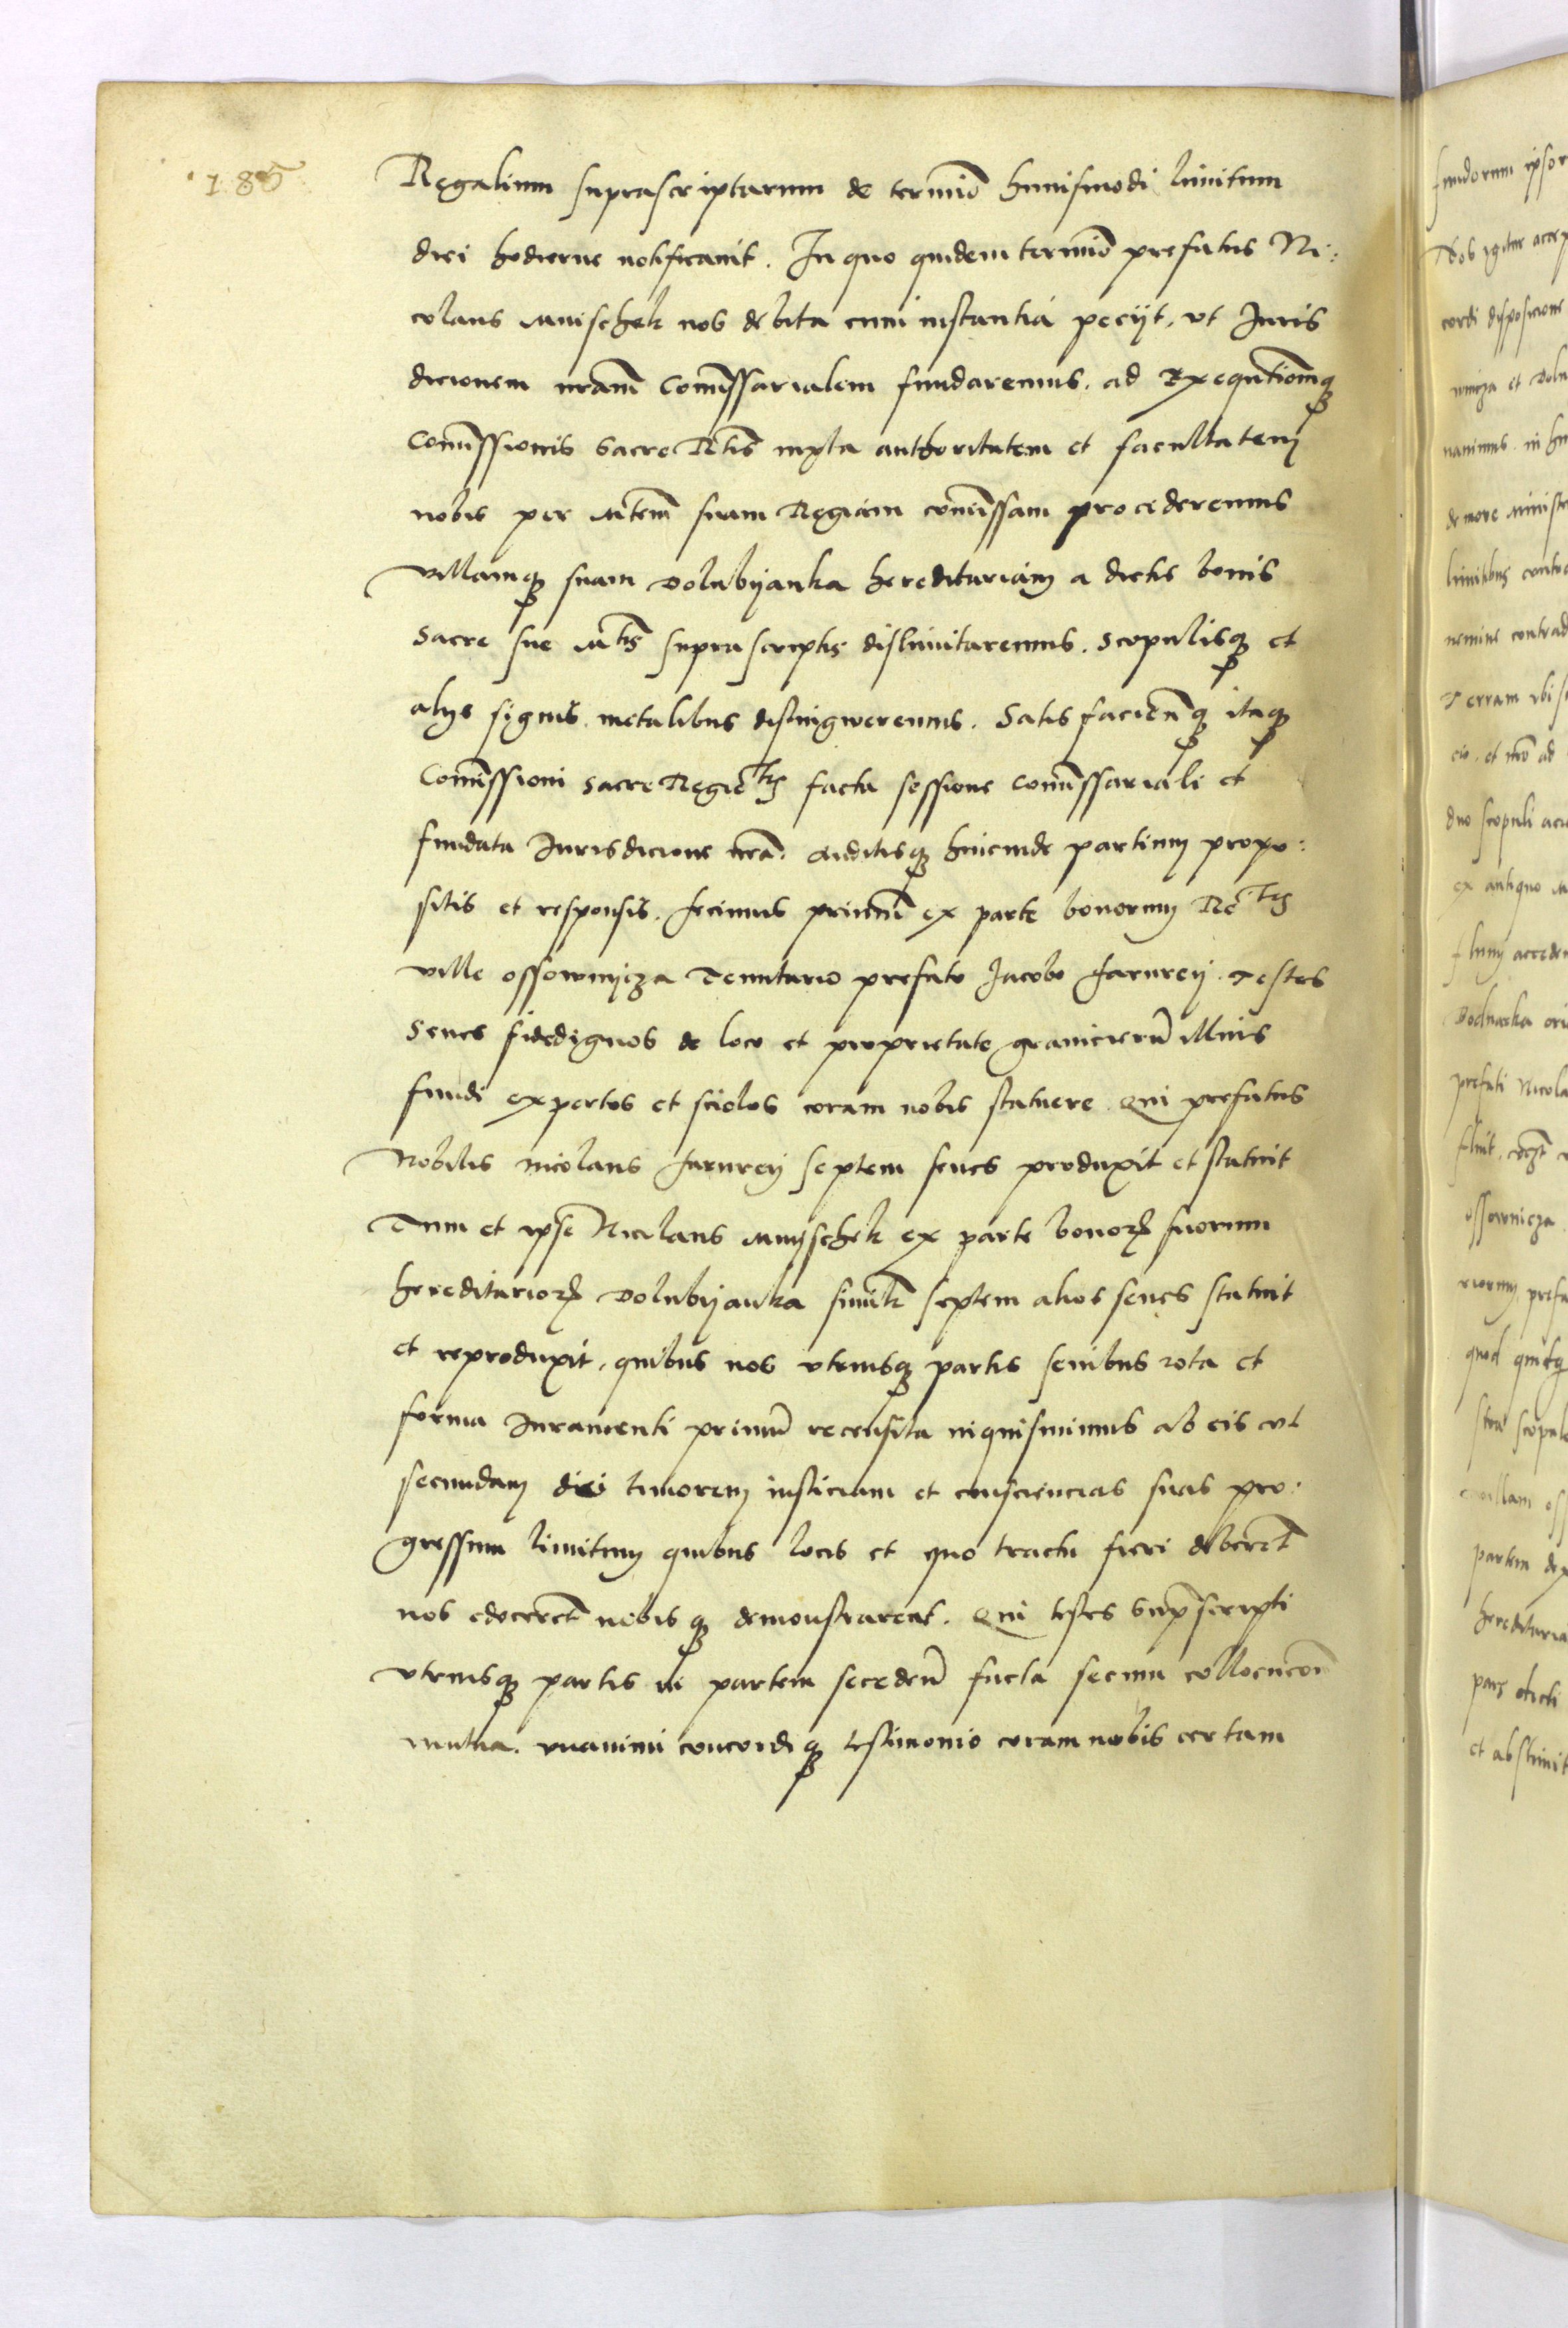 185
Regalium suprascriptarum de termīo huiusmodi limitum
diei hodierne notificauit. In quo quidem termīo prefatus Ni:
colaus Mnischek nos debita cum instantia peciit, vt Juris
dicionem nr̄am Com̄issarialem fundaremus. ad Exequtiom̄q3
Com̄issionis Sacre Mt̄is iuxta authoritatem et facultatem
nobis per Mtem̄ suam Regiam com̄issam procederemus
villamq3 suam Dolubijanka hereditariam a dictis bonis
Sacre sue Mt̄is suprascriptis dislimitaremus. Scopulisq3 et
alijs signis metalibus distingweremus. Satis facien̄q3 itaq3
Com̄issioni Sacre Regie Mt̄is facta sessione Com̄issariali et
fundata Jurisdicione nr̄a. Auditisq3 hincinde partium propo:
sitis et responsis. fecimus primum̄ ex parte bonorum Re Mt̄is
ville ossownijcza Tenutario prefato Jacobo farurej. Testes
Senes fidedignos de loco et proprietate granicierum̄ illius
fundi expertos et sciolos coram nobis statuere. Qui prefatus
Nobilis nicolaus farurej septem senes produxit et statuit
Tum et ipse Nicolaus Mnijschek ex parte bonor̄ suorum
hereditarior̄ Dolubijanka simil̄r septem alios senes statuit
et reproduxit, quibus nos vtriusq3 partis senibus rota et
forma Juramenti primum̄ recensita inquisiuimus ab eis vt
secundam dei timorem iusticiam et consciencias suas pro:
gressum limitum quibus locis et quo tractu fieri deberet̄
nos edoceret̄ nobis q3 demonstrarent. Qui testes Sup̄scripti
vtriusq3 partis in partem secedeñ facta secum collocuc̄oe
mutua. vnanimi concordi q3 testimonio coram nobis certam
fundorum ipsor
Nos igitur accep
cordi disposicione
wnicza et Dolu
nauimus. in
de more ministe
limitibus contra
nemine contrad
Terram vbi
eio. et mō ad
duo scopuli acia
ex antiquo
flum acceden
Bodnarka ori
prefati Nicola
fluit,
ossownicza
riorum, prefa
quod quidq
scopul
villam oss
partem dex
hereditaria
pars dicti
et abstinuit